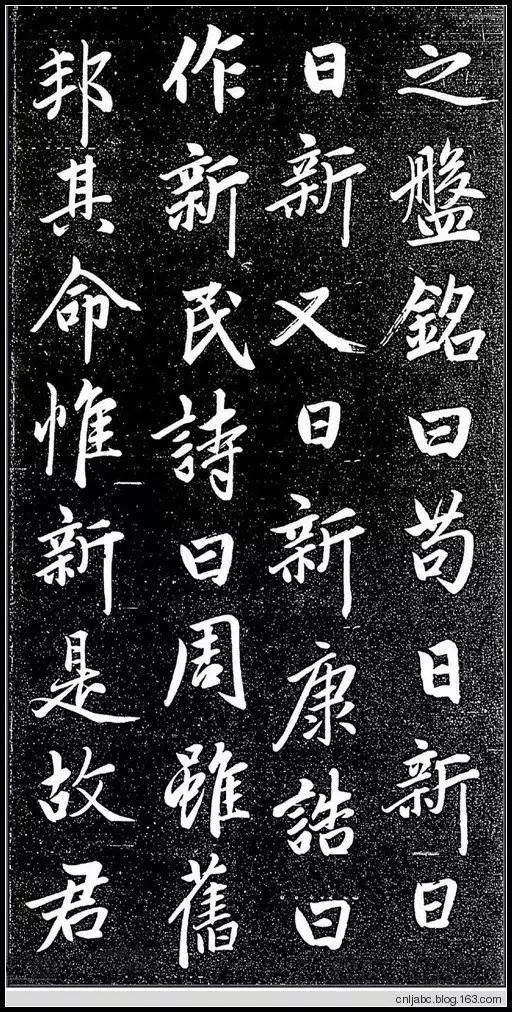 之盤銘曰苟日新日
日新又日新康誥曰
作新民詩曰周雖舊
邦其命惟新是故君
cnljabc.blog.163.com